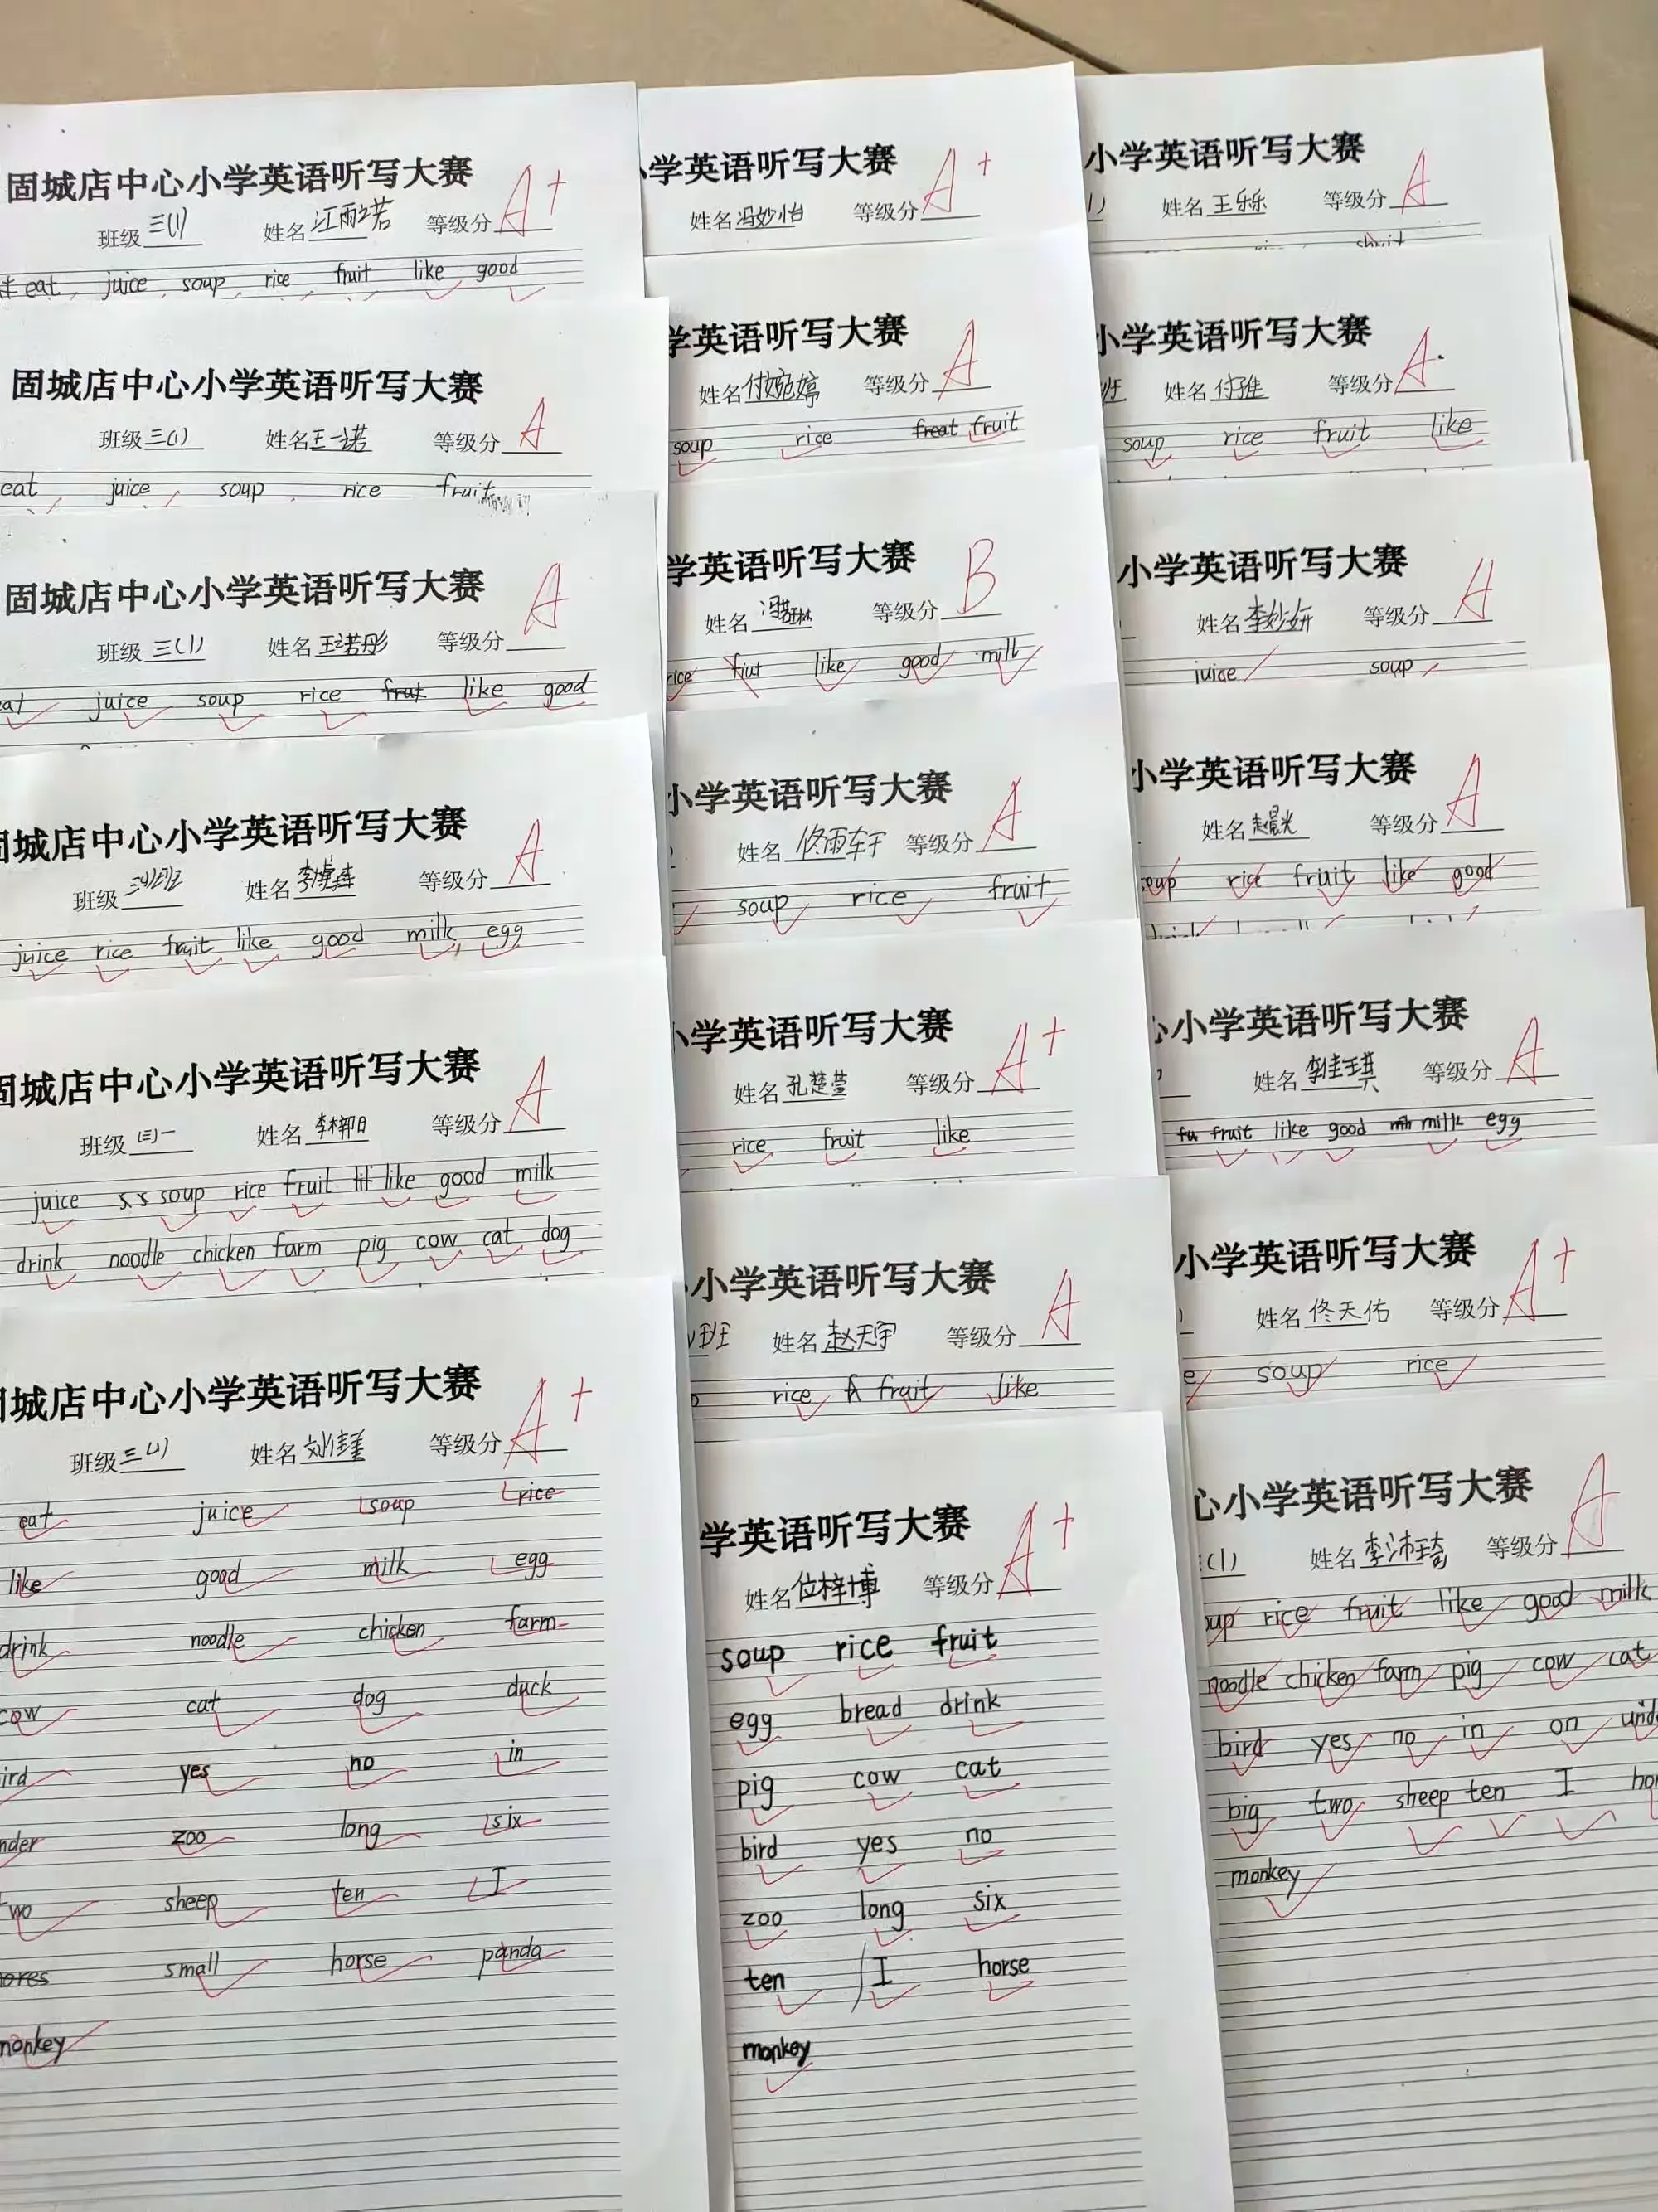 固城店中心小学英语听写大赛 A+
班级 三(1) 姓名 江雨诺 等级分
eat juice soup rice fruit like good
固城店中心小学英语听写大赛 A
班级 三(1) 姓名 王一诺 等级分
eat juice soup rice fruit
固城店中心小学英语听写大赛 A
班级 三(1) 姓名 王诺彤 等级分
eat juice soup rice frut like good
固城店中心小学英语听写大赛 A
班级 姓名 等级分
juice rice fruit like good milk, egg
固城店中心小学英语听写大赛 A
班级 (三)一 姓名 等级分
juice s.s soup rice fruit like good milk
drink noodle chicken farm pig cow cat dog
固城店中心小学英语听写大赛 A+
班级 三(1) 姓名 等级分
eat juice soup rice
like good milk egg
drink noodle chicken farm
cow cat dog duck
ird yes no in
nder zoo long six
two sheep ten I
ores small horse panda
monkey
小学英语听写大赛 A+
姓名 冯妙怡 等级分
学英语听写大赛 A
姓名 付婉婷 等级分
soup rice freat fruit
学英语听写大赛 B
姓名 等级分
rice fiut like good milk
小学英语听写大赛 A
姓名 佟雨轩 等级分
soup rice fruit
小学英语听写大赛 A+
姓名 孔楚莹 等级分
rice fruit like
小学英语听写大赛 A
班 姓名 赵天宇 等级分
rice fruit like
学英语听写大赛 A+
姓名 位梓博 等级分
soup rice fruit
egg bread drink
pig cow cat
bird yes no
zoo long six
ten I horse
monkey
小学英语听写大赛 A
姓名 王乐乐 等级分
小学英语听写大赛 A
班 姓名 付雅 等级分
soup rice fruit like
小学英语听写大赛 A
姓名 李妙妍 等级分
juice soup
小学英语听写大赛 A
姓名 赵晨光 等级分
soup rice fruit like good
心小学英语听写大赛 A
姓名 李佳琪 等级分
fu fruit like good milk egg
小学英语听写大赛 A+
姓名 佟天佑 等级分
e soup rice
心小学英语听写大赛 A
(1) 姓名 李沛琦 等级分
oup rice fruit like good milk
noodle chicken farm pig cow cat
bird yes no in on unde
big two sheep ten I hor
monkey